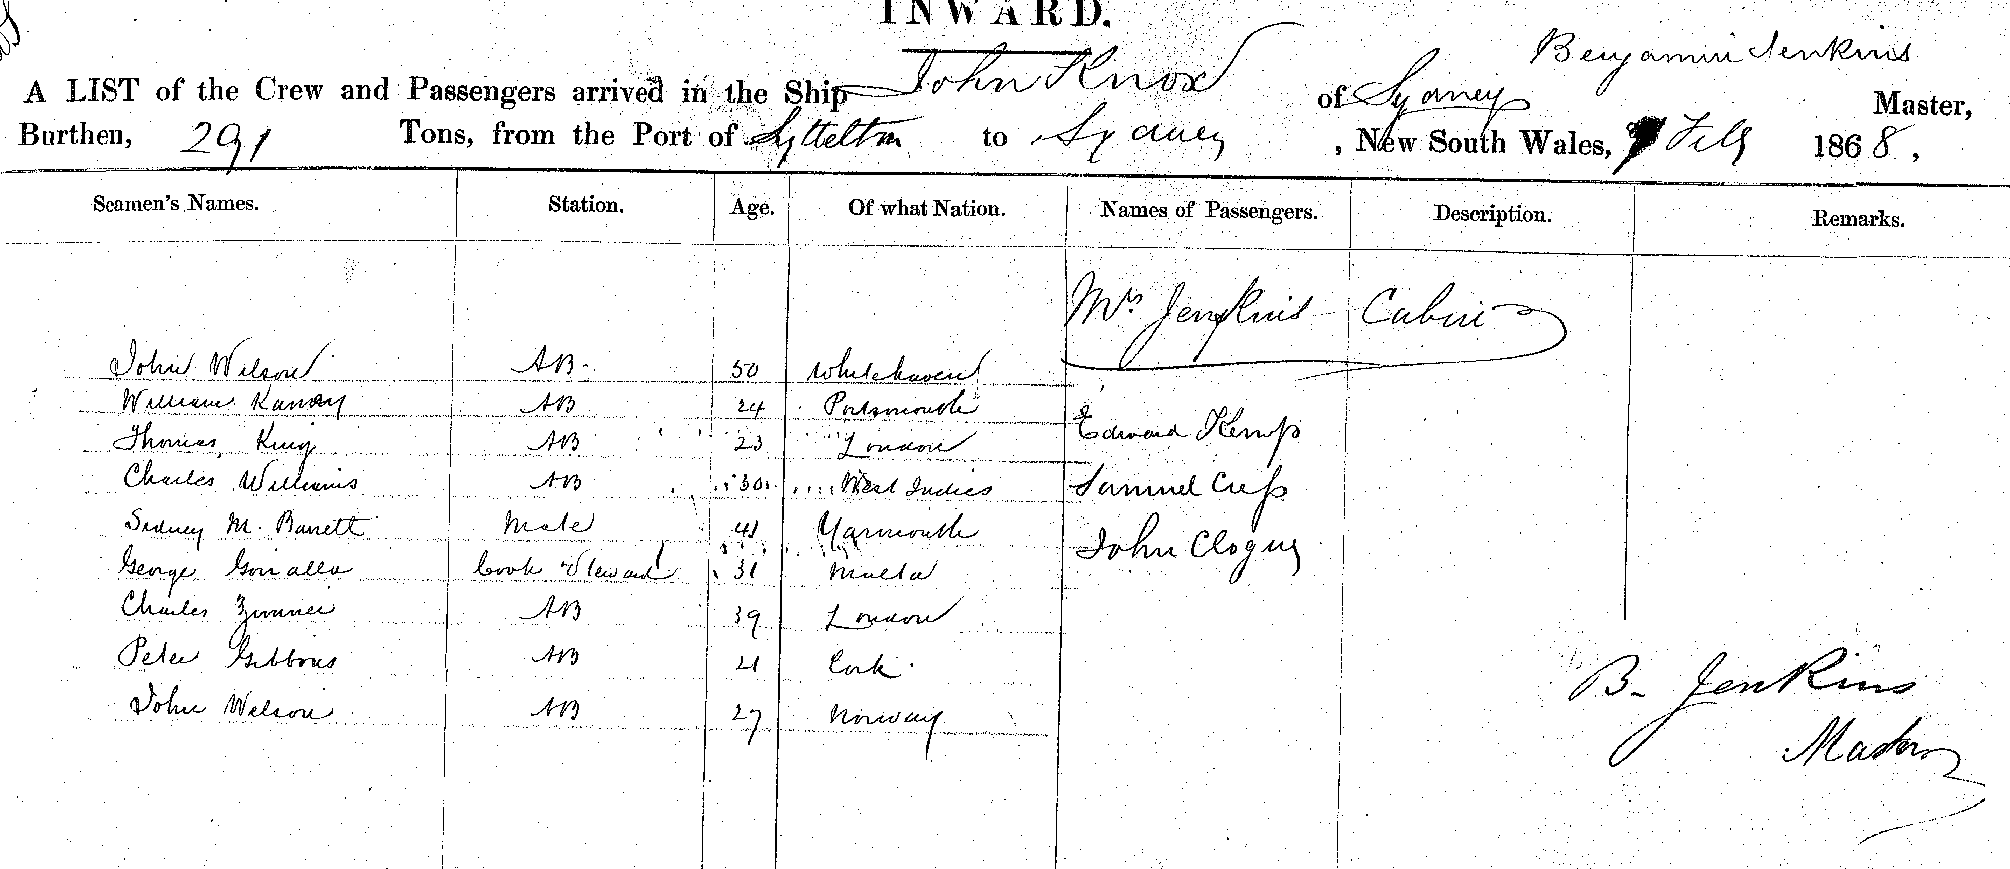 INWARD.
Benjamin Jenkins
A LIST of the Crew and Passengers arrived in the Ship John Knox of Sydney Master,
Burthen, 291 Tons, from the Port of Lyttelton to Sydney, New South Wales, Feby 1868,
Seamen's Names. Station. Age. Of what Nation. Names of Passengers. Description. Remarks.
Mrs Jenkins Cabin
John Wilson AB. 50 Whitehaven
William AB 24 Portsmouth
Edward Kemp
Thomas King AB 23 London
Charles Williams AB 30 West Indies
Samuel Cress
Sidney M. Barrett Mate 41 Yarmouth
John Cloguy
George Cook Steward 31 Malta
Charles AB 39 London
Peter Gibbons AB 21 Cork
B. Jenkins
John Wilson AB 27 Norway
Master